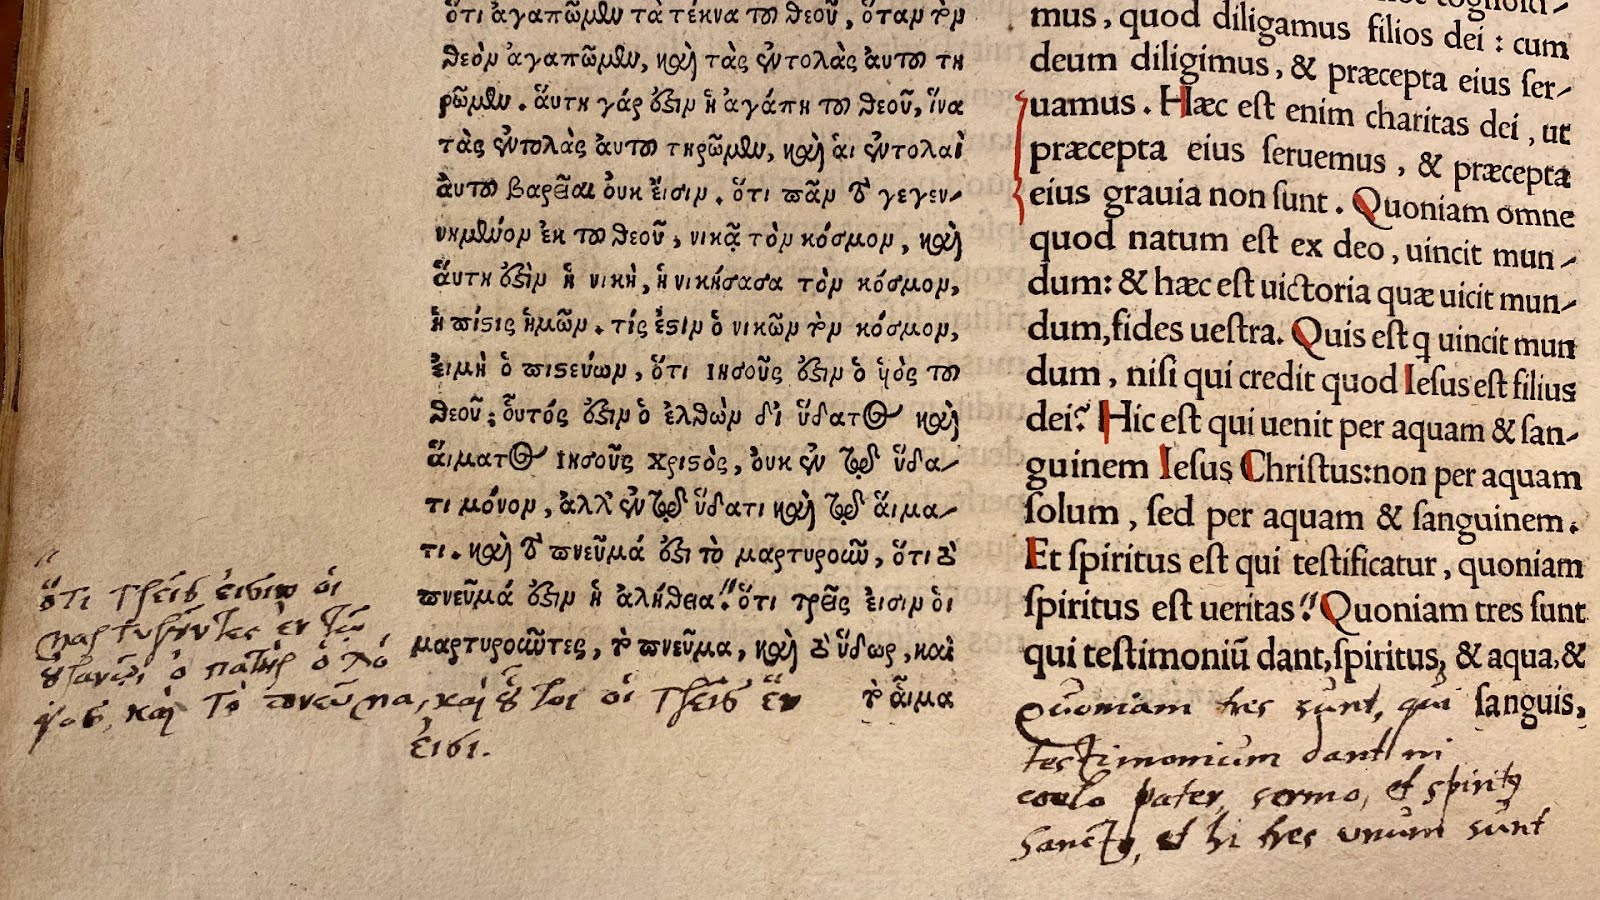 ὅτι ἀγαπῶμεν τὰ τέκνα τοῦ θεοῦ, ὅταν τὸν
θεὸν ἀγαπῶμεν, καὶ τὰς ἐντολὰς ἀυτοῦ τη
ρῶμεν. ἅυτη γάρ ἐστιν ἡ ἀγάπη τοῦ θεοῦ, ἵνα
τὰς ἐντολὰς ἀυτοῦ τηρῶμεν, καὶ ἁι ἐντολαὶ
ἀυτοῦ βαρεῖαι ὀυκ ἔισιν. ὅτι πᾶν τὸ γεγεν-
νημένον ἐκ τοῦ θεοῦ, νικᾷ τὸν κόσμον, καὶ
ἅυτη ἐστὶν ἡ νικὴ, ἡ νικήσασα τὸν κόσμον,
ἡ πίστις ἡμῶν. τίς ἐστιν ὁ νικῶν τὸν κόσμον,
ἐιμὴ ὁ πιστεύων, ὅτι ιησοῦς ἐστιν ὁ ὑὸς τοῦ
θεοῦ; ὁυτός ἐστιν ὁ ἐλθὼν δι ὕδατος καὶ
ἅιματος ιησοῦς χριστὸς, ὀυκ ἐν τῷ ὕδα-
τι μόνον, ἀλλ' ἐν τῷ ὕδατι καὶ τῷ ἅιμα-
τι. καὶ τὸ πνεῦμά ἐστι τὸ μαρτυροῦν, ὅτι τὸ
πνεῦμά ἐστιν ἡ ἀλήθεια. ὅτι τρεῖς ἐισιν ὁι
μαρτυροῦντες, τὸ πνεῦμα, καὶ τὸ ὕδωρ, καὶ
τὸ ἇιμα
ὅτι τρεῖς ἐισιν οἱ
μαρτυροῦντες ἐν τῷ
οὐρανῷ, ὁ πατὴρ ὁ λό
γος, καὶ τὸ πνεῦμα, καὶ οὗτοι οἱ τρεῖς ἓν
ἐισι.
mus, quod diligamus filios dei: cum
deum diligimus, & præcepta eius ser-
uamus. Hæc est enim charitas dei, ut
præcepta eius seruemus, & præcepta
eius grauia non sunt. Quoniam omne
quod natum est ex deo, uincit mun-
dum: & hæc est uictoria quæ uicit mun-
dum, fides uestra. Quis est q uincit mun
dum, nisi qui credit quod Iesus est filius
dei? Hic est qui uenit per aquam & san-
guinem Iesus Christus: non per aquam
solum, sed per aquam & sanguinem.
Et spiritus est qui testificatur, quoniam
spiritus est ueritas. Quoniam tres sunt
qui testimoniū dant, spiritus, & aqua, &
sanguis,
Quoniam tres sunt, qui
testimonium dant in
coelo pater, sermo, et spiritꝰ
sanctꝰ, et hi tres unum sunt